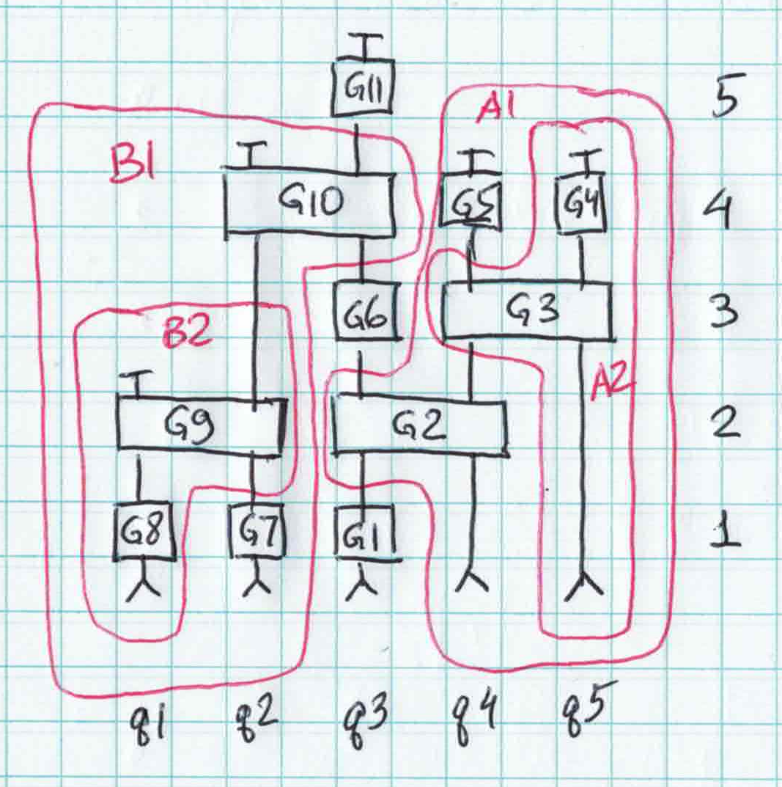 G11 A1 5
B1 G10 G5 G4 4
G6 G3 3
B2 A2
G9 G2 2
G8 G7 G1 1
q1 q2 q3 q4 q5